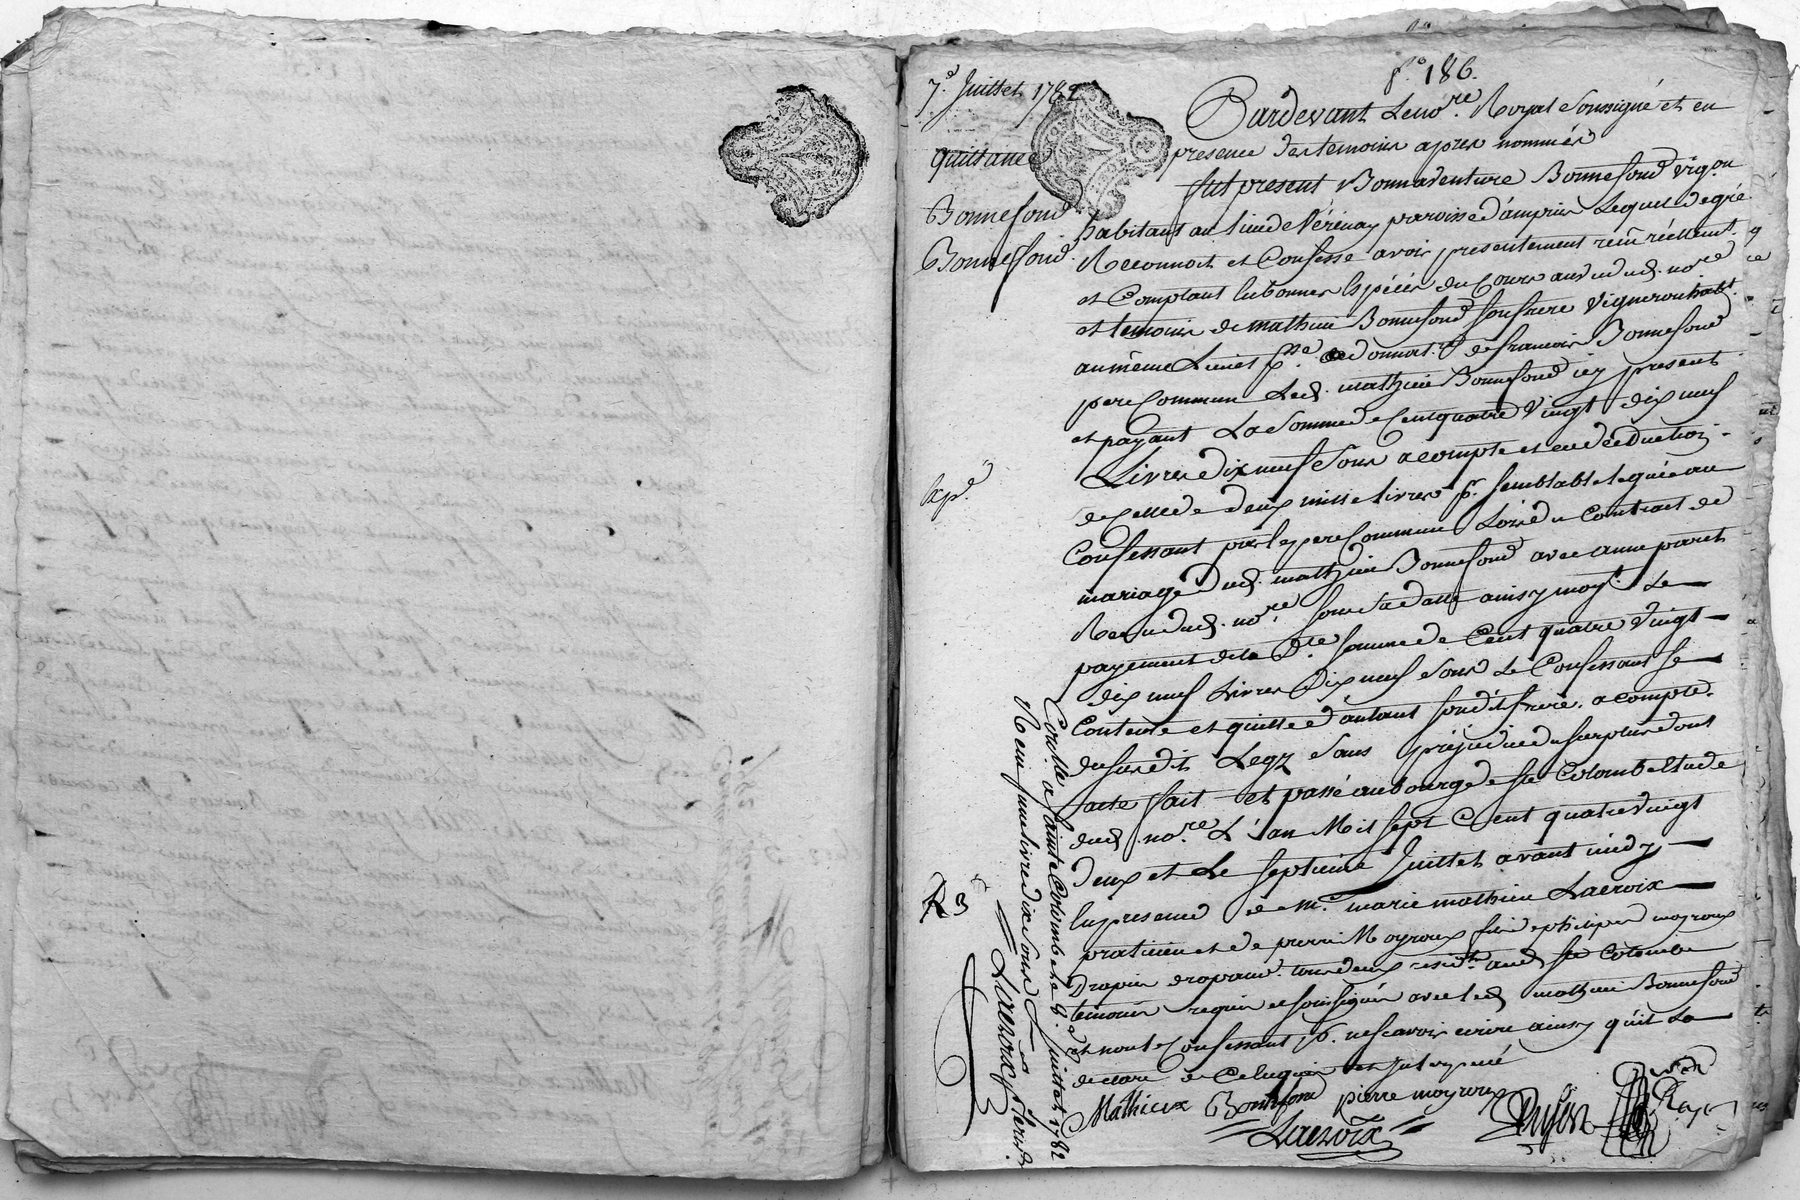 f.° 186.
7.e Juillet 1782
quittance
Bonnefond
Bonnefond
Expé.
R 3
Pardevant Le no.re Royal soussigné et en
presence des temoins apres nommés
fut present Bonnaventure Bonnefond vig.on
habitant au lieu de Vérénay paroisse d'ampuis Lequel de gré
Reconnoit et Confesse avoir présentement reçu réellement
et Comptant en bonnes Espéces du Cours au vu dud. no.re
et temoins de mathieu Bonnefond son frere vigneron habt.
au même Lieu et donnat.re de francois Bonnefond
pere Commun Led. mathieu Bonnefond icy present
et payant La somme de Cent quatre vingt dix neuf
Livres dix neuf sous a compte et en déduction
de Celle de deux mille livres p. semblable leguée au
Confessant par le pere Commun Lors du Contract de
mariage dud. mathieu Bonnefond avec anne paret
Recu dud. no.re sous sa datte ainsy moy.t Le
payement de la d.te somme de Cent quatre vingt
dix neuf Livres dix neuf sous Le Confessant se
Contente et quitte d'autant son dit frere a compte
du susdit Legz sans préjudice du surplus dont
acte fait et passé au bourg de ste Colombe Etude
dud. no.re L'an Mil sept Cent quatre vingt
deux et Le septieme Juillet avant midy
En presence de m.e marie mathieu Lacroix
praticien et de pierre Moyroux fils de philipe moyroux
Drapier drapant tous deux resid.ts aud. ste Colombe
temoins requis et soussignés avec led. mathieu Bonnefond
et non le Confessant p. ne scavoir ecrire ainsy qu'il La
declaré de ce enquis et interpellé
Mathieux Bonnefond pierre moyroux
Lacroix
Conllé a sainte Colombe Le 8.e Juillet 1782
Recu une livre dix sous
Lacroix